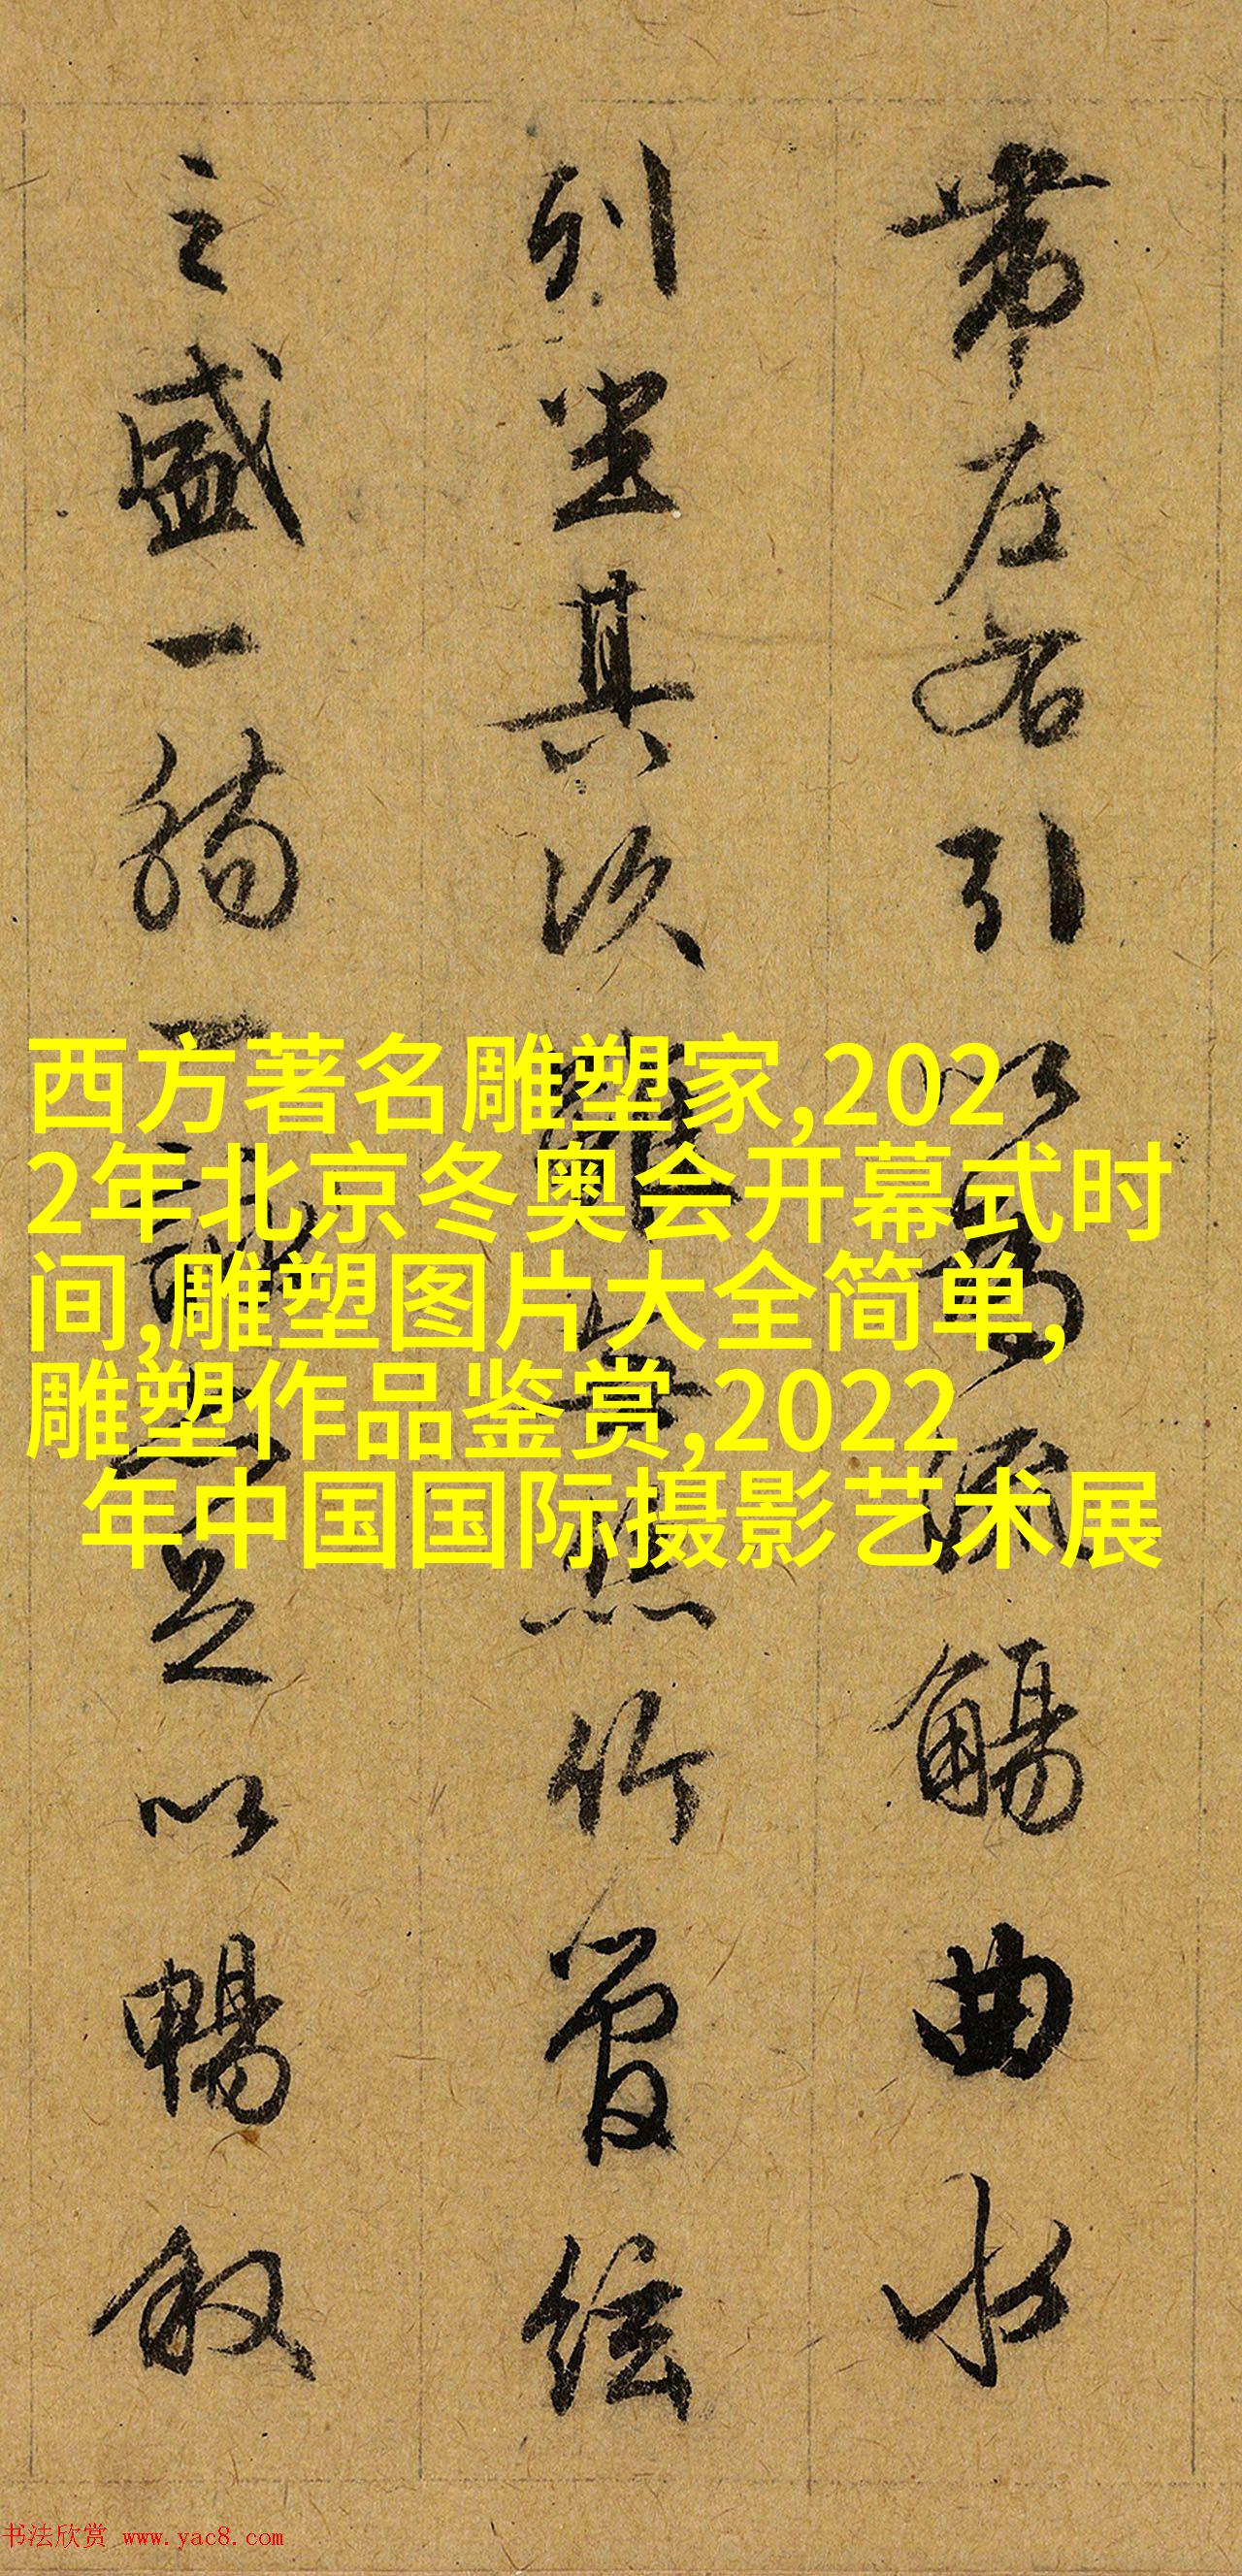 帶左右引以為流觴曲水
列坐其次雖無絲竹管絃
之盛一觴一詠亦足以暢敘
西方著名雕塑家,202
2年北京冬奥会开幕式时
间,雕塑图片大全简单,
雕塑作品鉴赏,2022
年中国国际摄影艺术展
书法欣赏 www.yac8.com